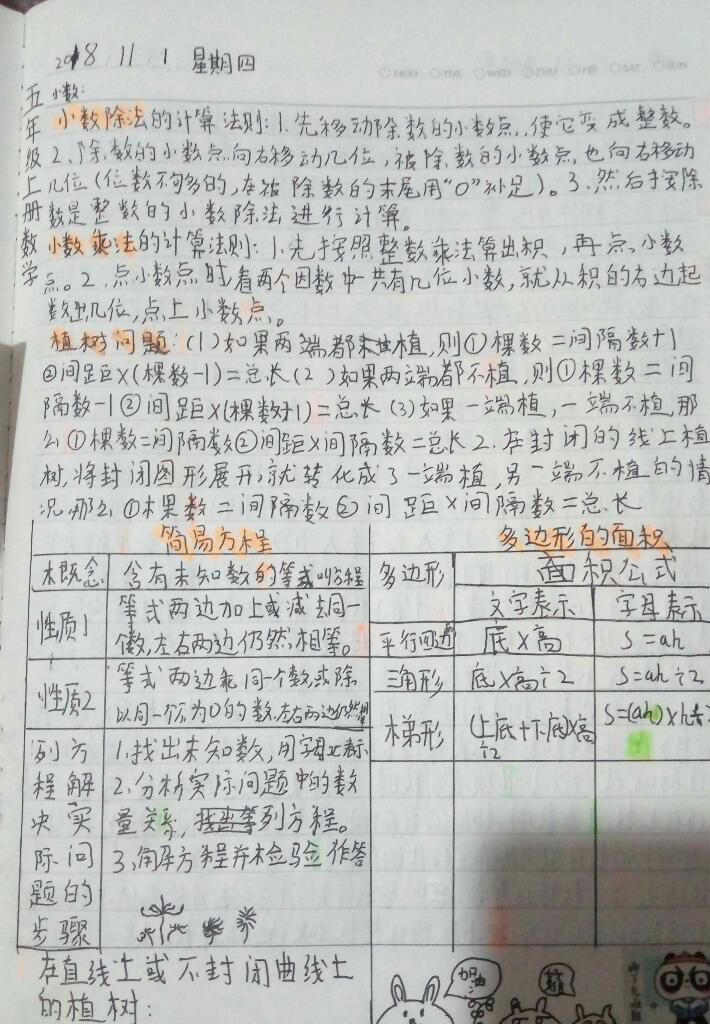 2018 11 1 星期四
MON TUE WED THU FRI SAT SUN
五年级上册数学
小数:
小数除法的计算法则:1.先移动除数的小数点,使它变成整数。
2.除数的小数点向右移动几位,被除数的小数点,也向右移动
几位(位数不够多的,在被除数的末尾用“0”补足)。3.然后按除
数是整数的小数除法进行计算。
小数乘法的计算法则:1.先按照整数乘法算出积,再点小数
点。2.点小数点时,看两个因数中共有几位小数,就从积的右边起
数出几位,点上小数点。
植树问题:(1)如果两端都植,则①棵数=间隔数+1
②间距×(棵数-1)=总长(2)如果两端都不植,则①棵数=间
隔数-1②间距×(棵数+1)=总长(3)如果一端植,一端不植,那
么①棵数=间隔数②间距×间隔数=总长2.在封闭的线上植
树,将封闭图形展开,就转化成了一端植,另一端不植的情
况那么①棵数=间隔数②间距×间隔数=总长
简易方程
概念 含有未知数的等式叫方程
性质1 等式两边加上或减去同一
个数,左右两边仍然相等。
性质2 等式两边乘同一个数,或除
以同一个不为0的数,左右两边仍然
列方程解决实际问题的步骤
1.找出未知数,用字母x表示
2.分析实际问题中的数
量关系,列方程。
3.解方程并检验作答
多边形的面积
多边形 面积公式
文字表示 字母表示
平行四边 底×高 S=ah
三角形 底×高÷2 S=ah÷2
梯形 (上底+下底)×高
÷2
在直线上或不封闭曲线上
的植树:
加油